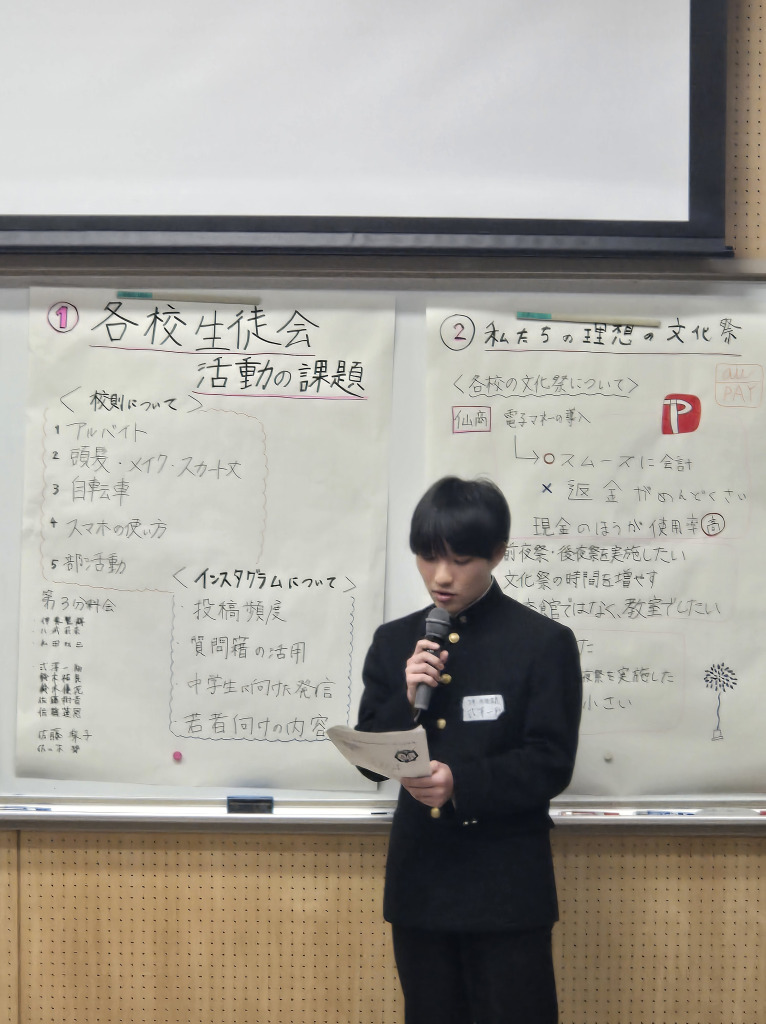 ① 各校生徒会
活動の課題
〈校則について〉
1 アルバイト
2 頭髪・メイク・スカート丈
3 自転車
4 スマホの使い方
5 部活動
〈インスタグラムについて〉
・投稿頻度
・質問箱の活用
・中学生に向けた発信
・若者向けの内容
第3分科会
佐藤 梨子
② 私たちの理想の文化祭
〈各校の文化祭について〉
仙商 電子マネーの導入
P
au PAY
○スムーズに会計
× 返金がめんどくさい
現金のほうが使用率高
前夜祭・後夜祭を実施したい
文化祭の時間を増やす
館ではなく、教室でしたい
た
夜祭を実施した
小さい